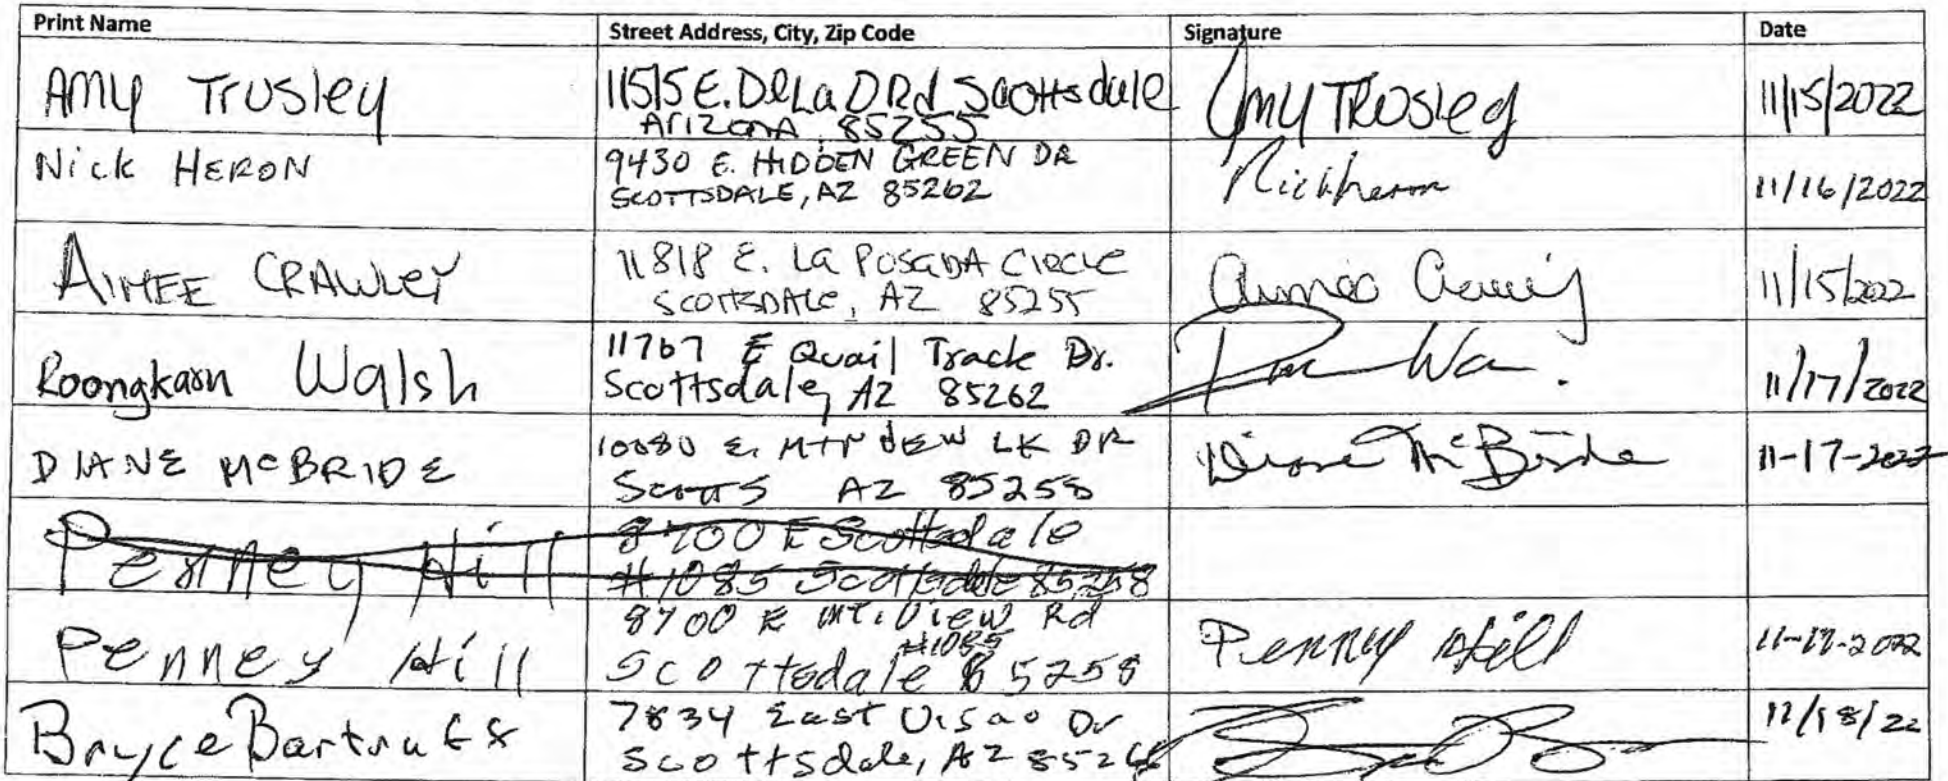 Print Name Street Address, City, Zip Code Signature Date
Amy Trusley 11515 E. De La O Rd Scottsdale Arizona 85255 Amy Trusley 11/15/2022
Nick HERON 9430 E. HIDDEN GREEN DR SCOTTSDALE, AZ 85262 Nick Heron 11/16/2022
AIMEE CRAWLEY 11818 E. LA POSADA CIRCLE SCOTTSDALE, AZ 85255 Aimee Crawley 11/15/2022
Roongkarn Walsh 11767 E Quail Track Dr. Scottsdale, AZ 85262 11/17/2022
DIANE McBRIDE 10080 E. MTN VIEW LK DR Scotts AZ 85258 Diane McBride 11-17-2022
Penney Hill 8700 E Scottsdale #1085 Scottsdale 85258
Penney Hill 8700 E Mt. View Rd #1085 Scottsdale 85258 Penney Hill 11-17-2022
Bryce 7834 East Visao Dr Scottsdale, AZ 85266